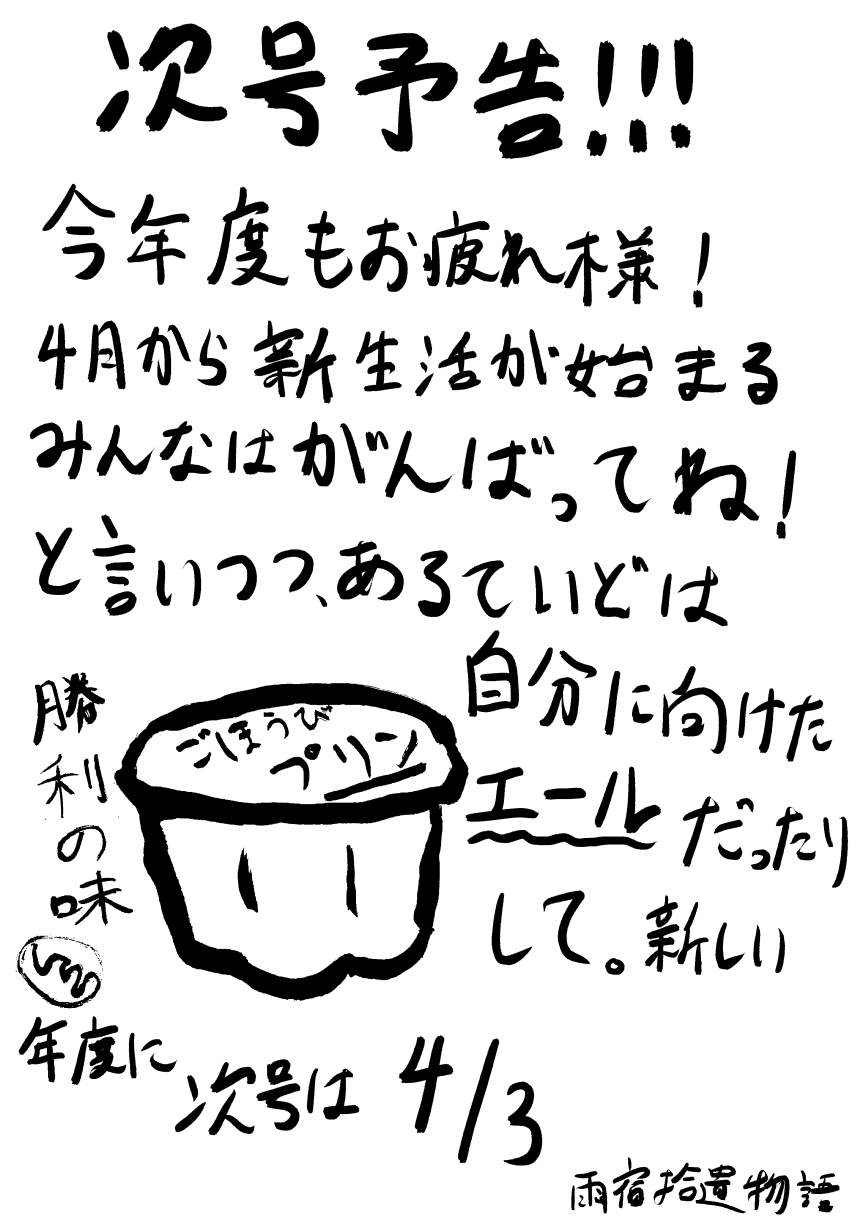 次号予告!!!
今年度もお疲れ様!
4月から新生活が始まる
みんなはがんばってね!
と言いつつ、あるていどは
自分に向けた
エールだったり
して。新しい
年度に
ごほうび
プリン
勝利の味
次号は4/3
雨宿拾遺物語